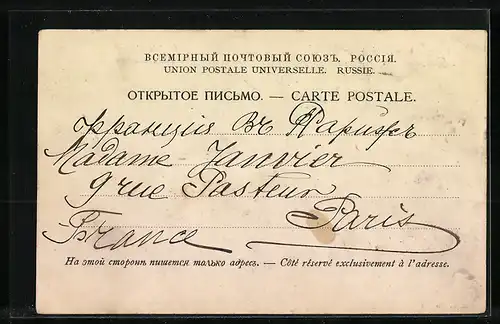 ВСЕМІРНЫЙ ПОЧТОВЫЙ СОЮЗЪ. РОССІЯ.
UNION POSTALE UNIVERSELLE. RUSSIE.
ОТКРЫТОЕ ПИСЬМО. — CARTE POSTALE.
Франція Въ Парижъ
Madame Janvier
9 rue Pasteur
Paris
France
На этой сторонѣ пишется только адресъ. — Côté réservé exclusivement à l'adresse.